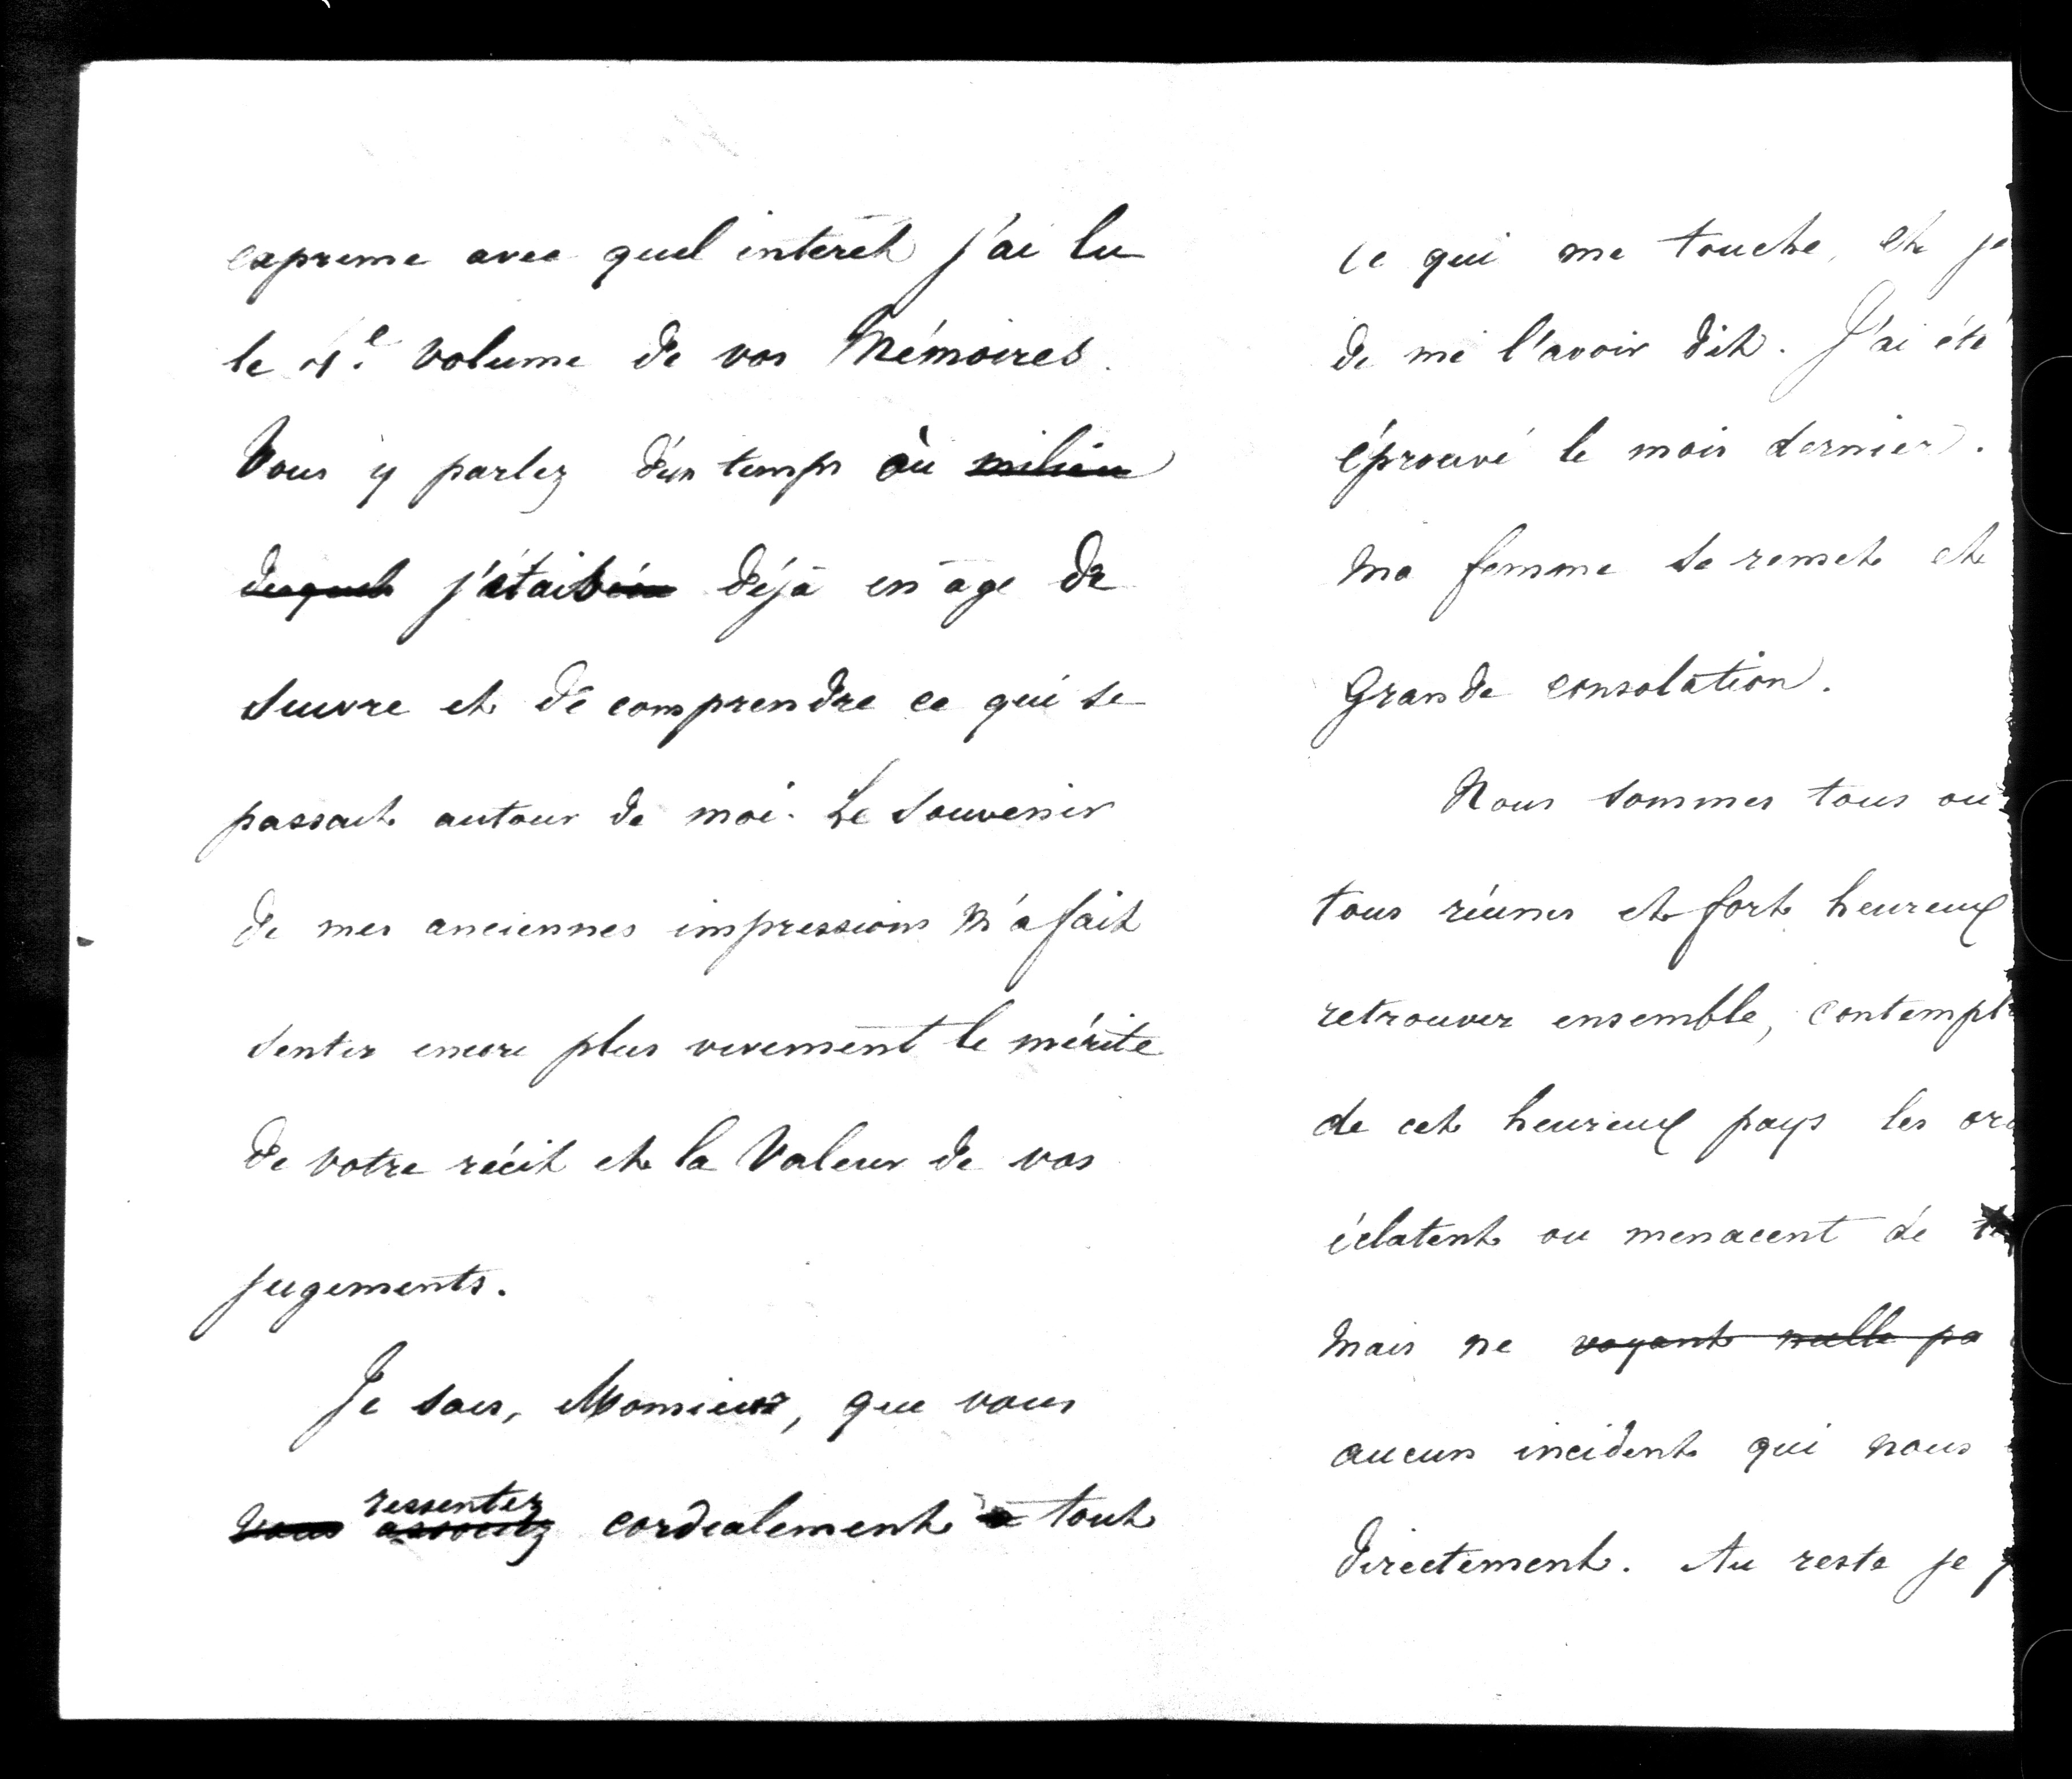 exprime avec quel intérêt j'ai lu
le 4.e volume de vos Mémoires.
Vous y parlez d'un temps où milieu
duquel j'étais déjà en âge de
suivre et de comprendre ce qui se
passait autour de moi. Le souvenir
de mes anciennes impressions m'a fait
sentir encore plus vivement le mérite
de votre récit et la valeur de vos
jugements.
Je sais, Monsieur, que vous
ressentez
vous associez cordialement à tout
ce qui me touche, et je
de me l'avoir dit. J'ai été
éprouvé le mois dernier.
Ma femme se remet et
Grande consolation.
Nous sommes tous ou
tous réunis et fort heureux
retrouver ensemble, contempl
de cet heureux pays les ora
éclatent ou menacent de
mais ne voyant nulle pa
aucun incident qui nous
directement. Au reste je